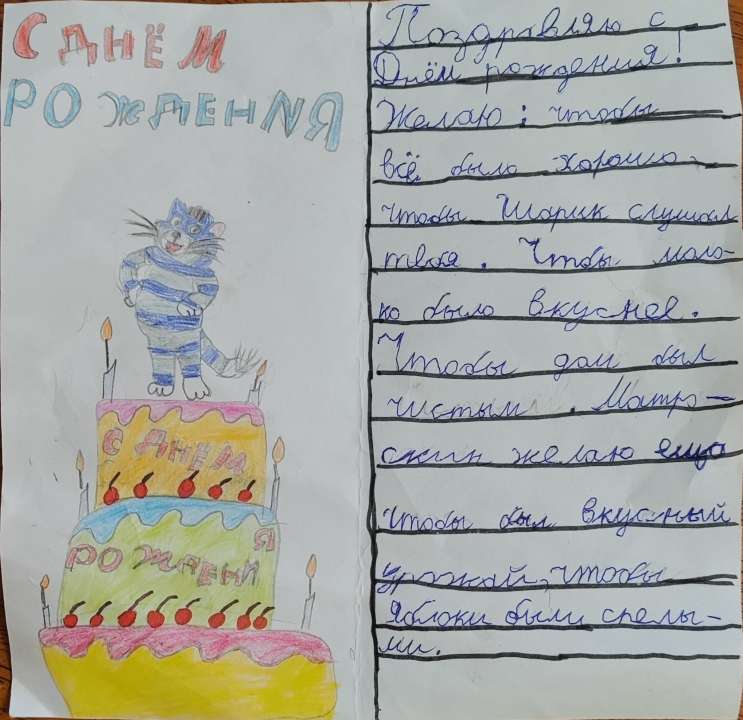 С ДНЁМ
РОЖДЕНИЯ
С ДНЕМ
РОЖДЕНИЯ
Поздравляю с
Днём рождения!
Желаю: чтобы
всё было хорошо
чтобы Шарик слушал
твоя. Чтобы моло-
ко было вкусное.
Чтобы дом был
чистым. Матро-
скин желаю ещо
чтобы был вкусный
урожай, чтобы
яблоки были спелы-
ми.